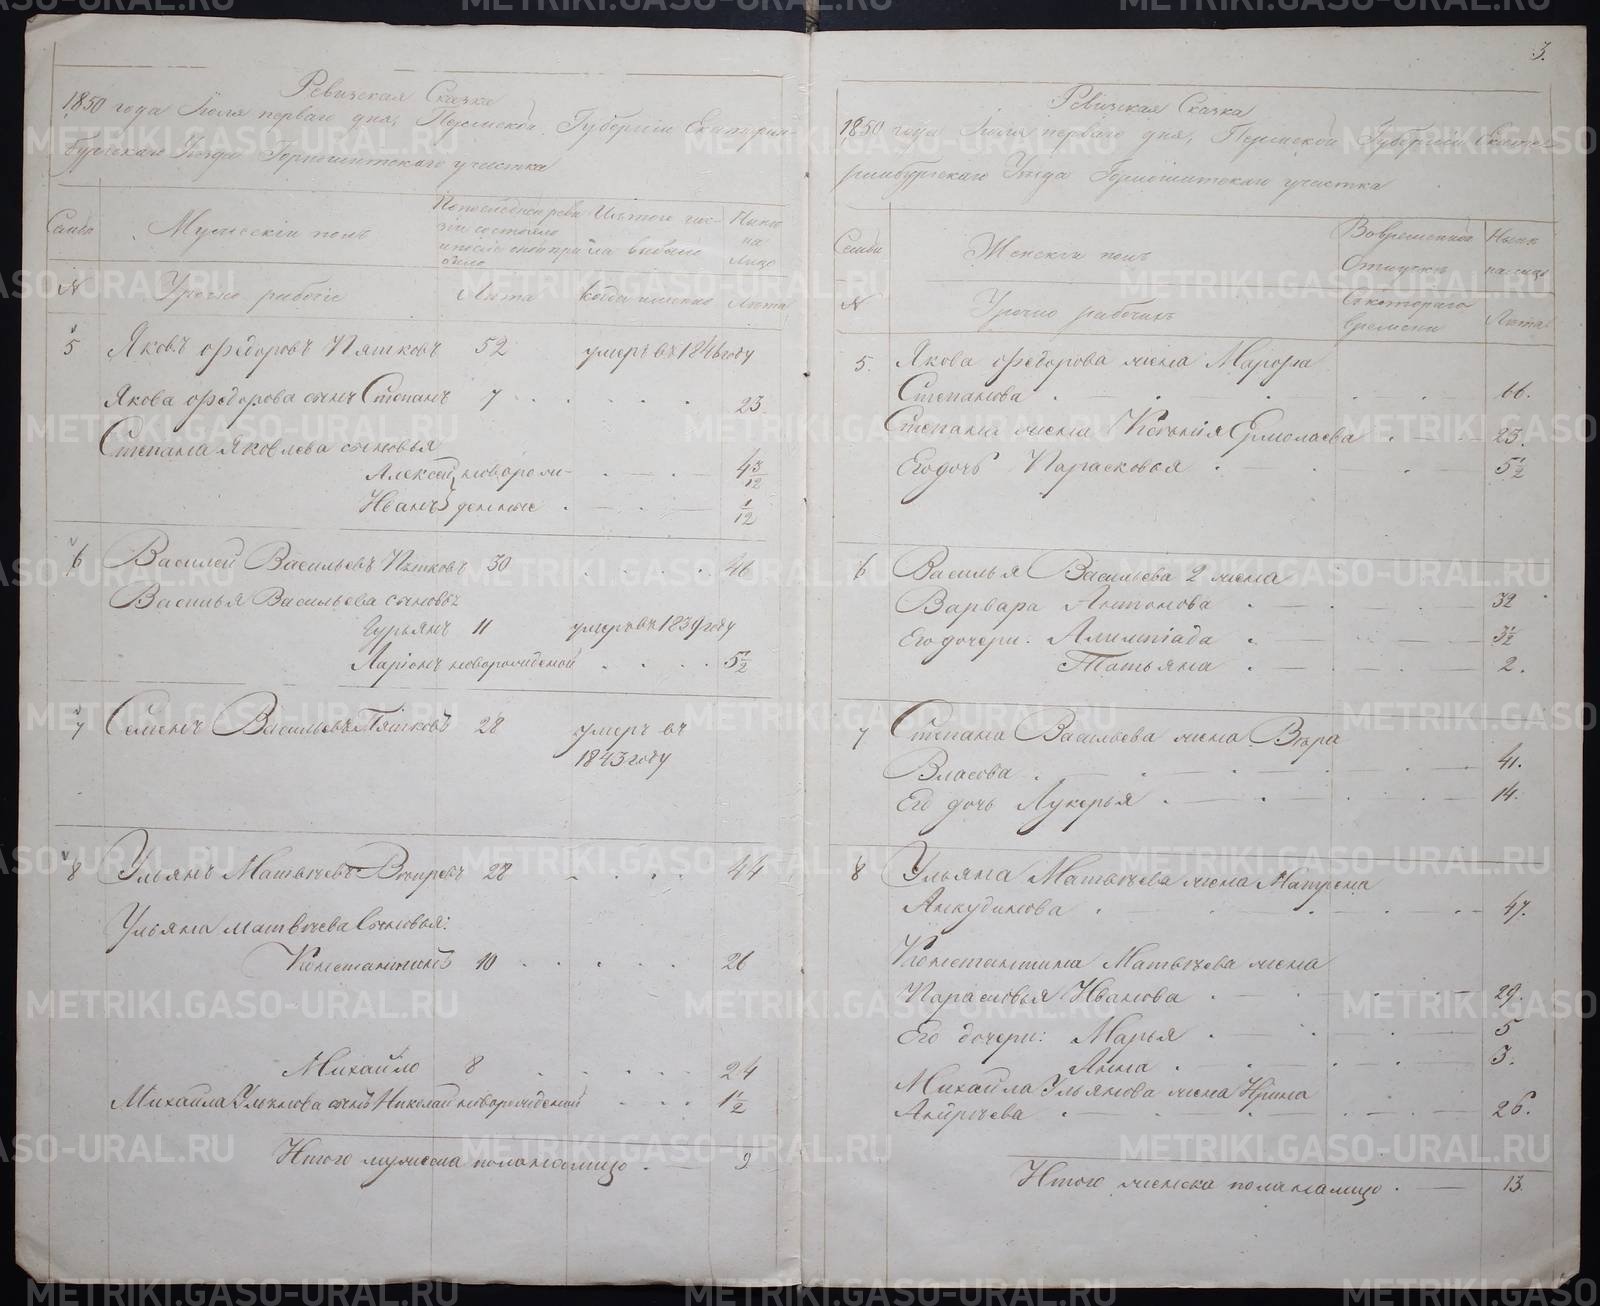 Ревизская Сказка
1850 года Июля перваго дня, Пермской Губернии Екатерин-
бургскаго Уезда Горношитскаго участка
Семьи
Мужескій полъ
По последней реви
зіи состояло
и после оной при
было
Изъ того чис-
ла выбыло
Ныне
на
Лицо
№
Урочно рабочіе
Лета
когда именно
Лета
5 Яковъ Федоровъ Пятковъ 52 умеръ въ 1846 году
Якова Федорова сынъ Степанъ 7 23
Степана Яковлева сыновья
Алексей новорож- 4 3/12
Иванъ денные 1/12
6 Василей Васильевъ Пятковъ 30 46
Василья Васильева сыновья
Гурьянъ 11 умеръ въ 1839 году
Ларіонъ новорожденой 5 1/2
7 Семенъ Васильевъ Пятковъ 28 умеръ въ
1843 году
8 Ульянъ Матвеевъ 28 44
Ульяна Матвеева Сыновья:
Константинъ 10 26
Михайло 8 24
Михайла Ульянова сынъ Николай новорожденой 1 1/2
Итого мужеска пола налицо 9
3.
Ревизская Сказка
1850 года Июля перваго дня, Пермской Губерніи Екате-
ринбургскаго Уезда Горношитскаго участка
Семьи
Женскій полъ
Во временной
Отлучке
Ныне
на лицо
№
Урочно рабочихъ
Съ котораго
времени
Лета
5. Якова Федорова жена Марфа
Степанова 66.
Степана жена Ксенія Ермолаева 23.
Его дочь Парасковья 5 1/2
6 Василья Васильева 2 жена
Варвара Антонова 32
Его дочери: Алимпіада 3 1/2
Татьяна 2.
7 Степана Васильева жена Вера
Власова 41.
Его дочь Лукерья 14.
8 Ульяна Матвеева жена Матрена
Анкудинова 47.
Константина Матвеева жена
Парасковья Иванова 29.
Его дочери: Марья 5
Анна 3.
Михайла Ульянова жена Ирина
Андреева 26.
Итого женска пола налицо 13.
METRIKI.GASO-URAL.RU